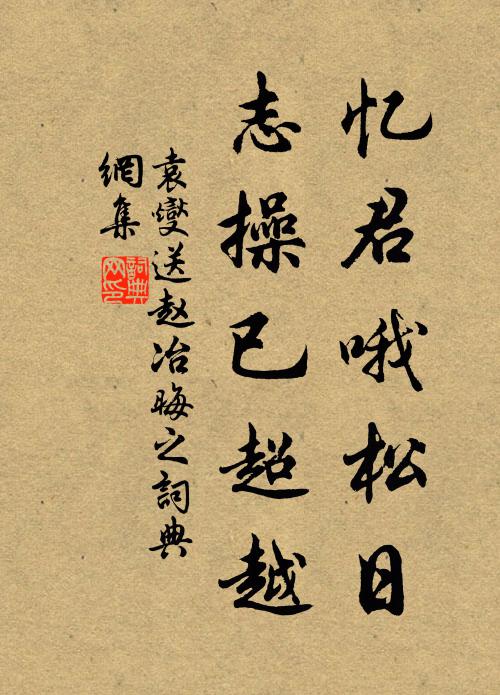 忆君哦松日
志操已超越
袁燮送赵冶晦之詞典
網集
詞典
网印